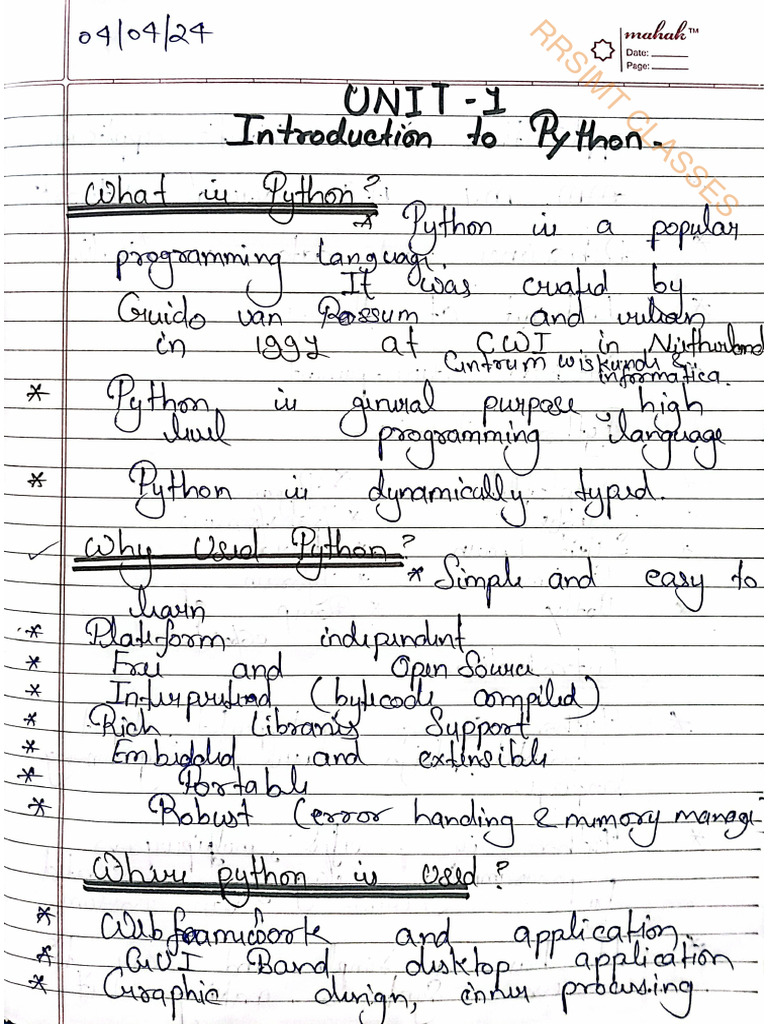 04/04/24
mahak™
Date:
Page:
RRSIMT CLASSES
UNIT-1
Introduction to Python-
What is Python?
* Python is a popular
programming language.
It was created by
Guido van Rossum and release
in 1991 at CWI in Netherland
Centrum wiskunde &
informatica.
* Python is general purpose, high
level programming language
* Python is dynamically typed.
✓ Why Used Python?
* Simple and easy to
learn
* Plateform independent
* Free and Open Source
* Interpreted (bytecode compiled)
* Rich Libraries Support
* Embedded and extensible
* Portable
* Robust (error handing & memory manage
Where python is Used?
* Web framework and application
* GUI Band desktop application
* Graphic design, processing.